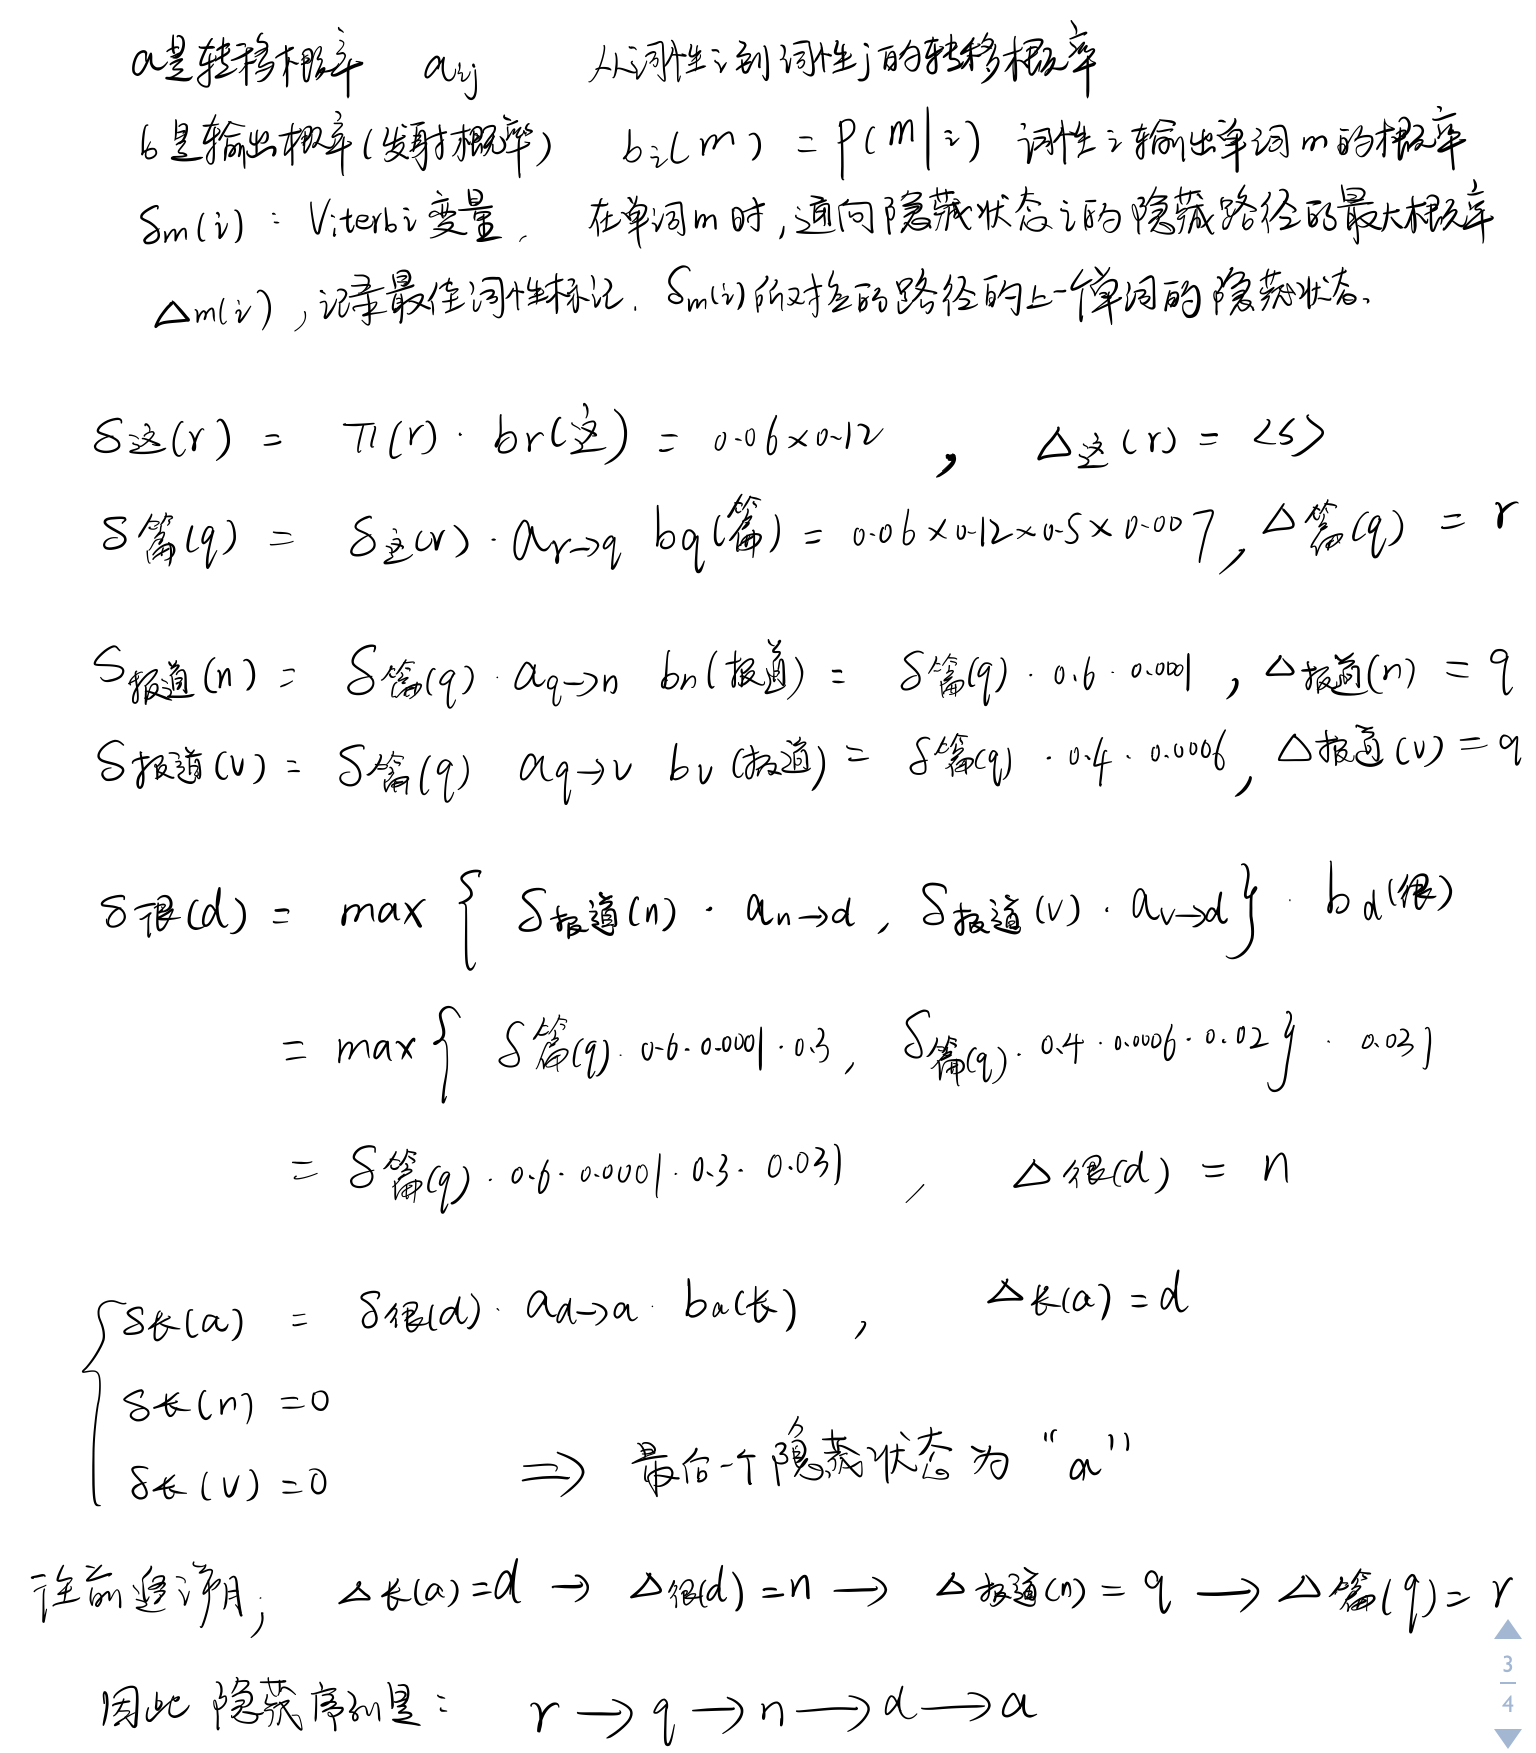 a是转移概率 aij 从词性i到词性j的转移概率
b是输出概率(发射概率) bi(m) = P(m|i) 词性i输出单词m的概率
δm(i): Viterbi变量, 在单词m时,通向隐藏状态i的隐藏路径的最大概率
Δm(i), 记录最佳词性标记. δm(i)所对应的路径的上一个单词的隐藏状态.
δ这(r) = π(r)·br(这) = 0.06×0.12 , Δ这(r) = <s>
δ篇(q) = δ这(r)·ar→q bq(篇) = 0.06×0.12×0.5×0.007, Δ篇(q) = r
δ报道(n) = δ篇(q)·aq→n bn(报道) = δ篇(q)·0.6·0.0001, Δ报道(n) = q
δ报道(v) = δ篇(q) aq→v bv(报道) = δ篇(q)·0.4·0.0006, Δ报道(v) = q
δ很(d) = max { δ报道(n)·an→d, δ报道(v)·av→d }·bd(很)
= max { δ篇(q)·0.6·0.0001·0.3, δ篇(q)·0.4·0.0006·0.02 }·0.031
= δ篇(q)·0.6·0.0001·0.3·0.031 , Δ很(d) = n
δ长(a) = δ很(d)·ad→a·ba(长) , Δ长(a) = d
δ长(n) = 0
δ长(v) = 0 ⇒ 最后一个隐藏状态为"a"
往前追溯, Δ长(a)=d → Δ很(d)=n → Δ报道(n) = q → Δ篇(q) = r
因此 隐藏序列是: r → q → n → d → a
3
4